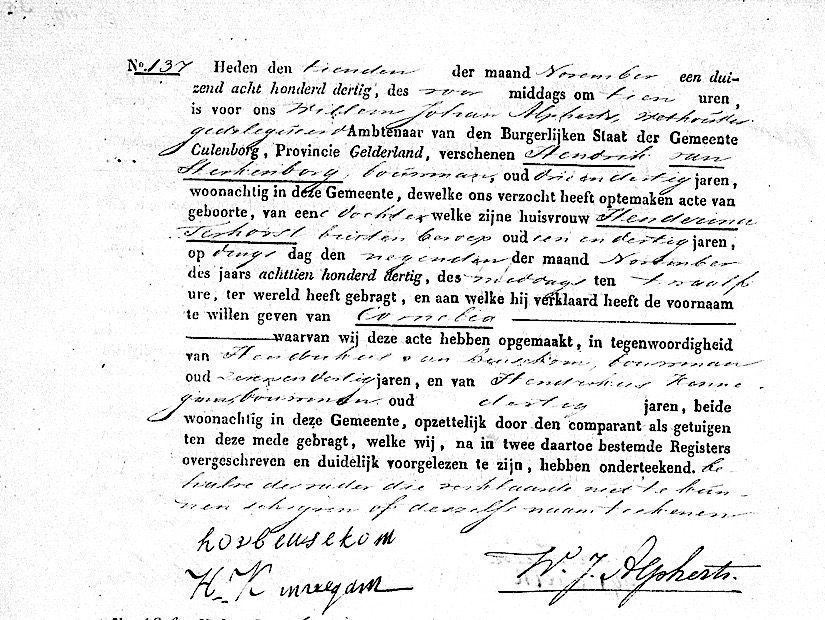 No. 137 Heden den tienden der maand November een dui-
zend acht honderd dertig, des voor middags om tien uren,
is voor ons Willem Johan Alpherts, Wethouder
gedelegeerd Ambtenaar van den Burgerlijken Staat der Gemeente
Culenborg, Provincie Gelderland, verschenen Hendrik van
Sterkenborg, bouwman, oud drie en dertig jaren,
woonachtig in deze Gemeente, dewelke ons verzocht heeft optemaken acte van
geboorte, van eene dochter welke zijne huisvrouw Henderina
Terhorst buiten beroep oud een en dertig jaren,
op dings dag den negenden der maand November
des jaars achttien honderd dertig, des middags ten twaalf
ure, ter wereld heeft gebragt, en aan welke hij verklaard heeft de voornaam
te willen geven van Cornelia
waarvan wij deze acte hebben opgemaakt, in tegenwoordigheid
van Henderikus van Beusekom, bouwman
oud zeven en dertig jaren, en van Henderikus
bouwman, oud dertig jaren, beide
woonachtig in deze Gemeente, opzettelijk door den comparant als getuigen
ten deze mede gebragt, welke wij, na in twee daartoe bestemde Registers
overgeschreven en duidelijk voorgelezen te zijn, hebben onderteekend. be-
halve de vader die verklaarde niet te kun-
nen schrijven of deszelfs naam teekenen
hvbeusekom
W. J. Alpherts.
H K